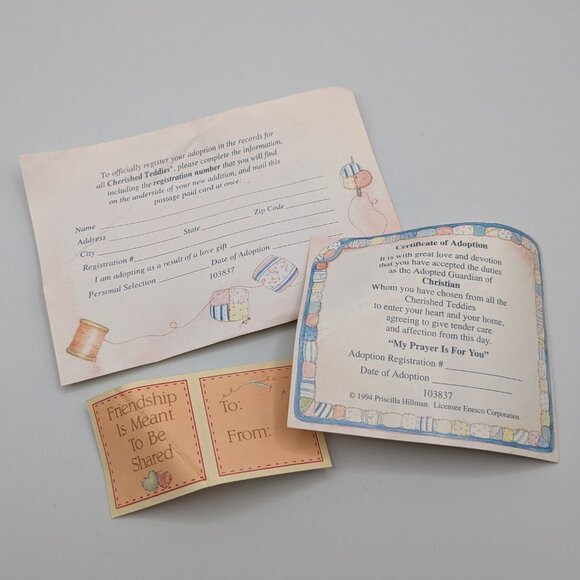 To officially register your adoption in the records for
all Cherished Teddies®, please complete the information,
including the registration number that you will find
on the underside of your new addition, and mail this
postage paid card at once:
Name
Address
City State Zip Code
Registration #
I am adopting as a result of a love gift
Personal Selection Date of Adoption
103837
Certificate of Adoption
It is with great love and devotion
that you have accepted the duties
as the Adopted Guardian of
Christian
Whom you have chosen from all the
Cherished Teddies
to enter your heart and your home,
agreeing to give tender care
and affection from this day.
"My Prayer Is For You"
Adoption Registration #
Date of Adoption
103837
© 1994 Priscilla Hillman. Licensee Enesco Corporation
Friendship
Is Meant
To Be
Shared
To:
From: